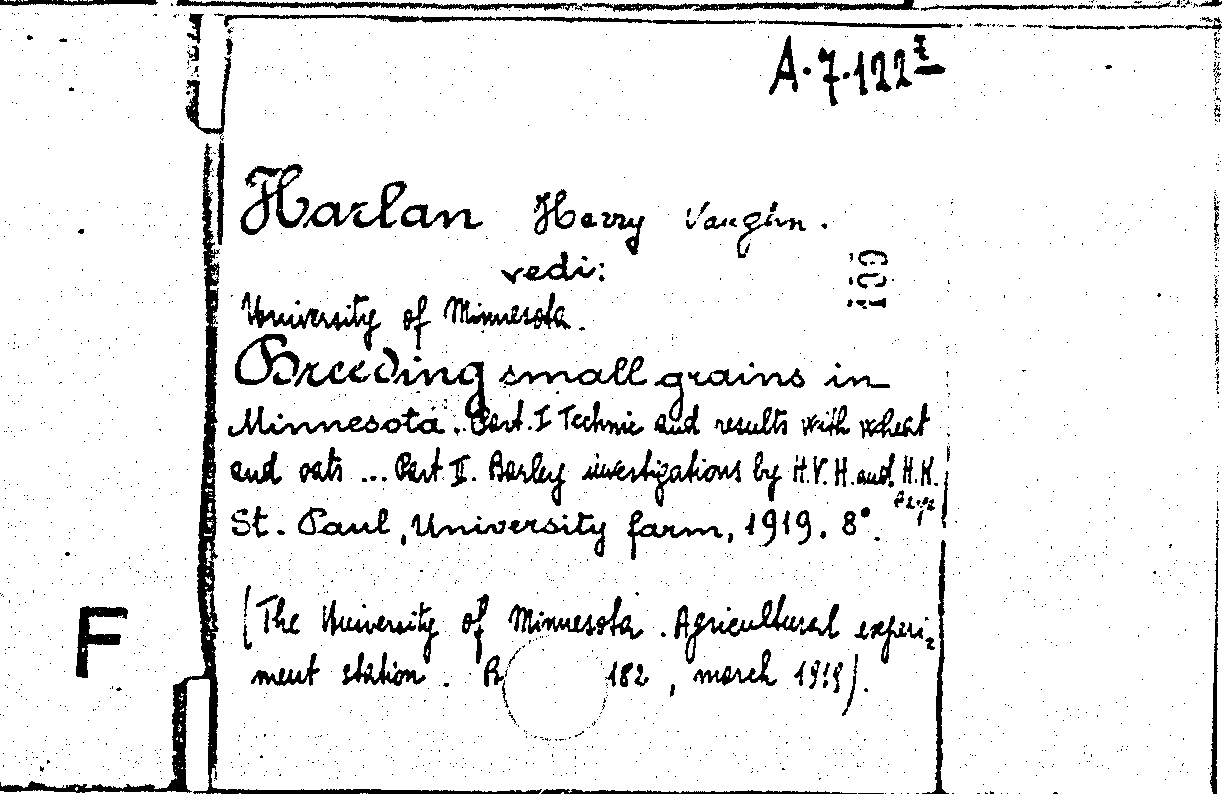 A.7.122
Harlan Harry Vaughn.
vedi:
University of Minnesota.
Breeding small grains in
Minnesota. Part. I Technic and results with wheat
and oats ... Part II. Barley investigations by H.V. H. and H.K.
St. Paul, University farm, 1919. 8°.
(The University of Minnesota. Agricultural experi=
ment station. 182, march 1919).
F